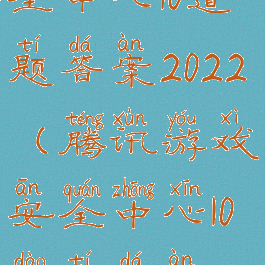 中心10道
tí dá àn
题答案2022
téng xùn yóu xì
(腾讯游戏
ān quán zhōng xīn
安全中心10
dào tí dá àn